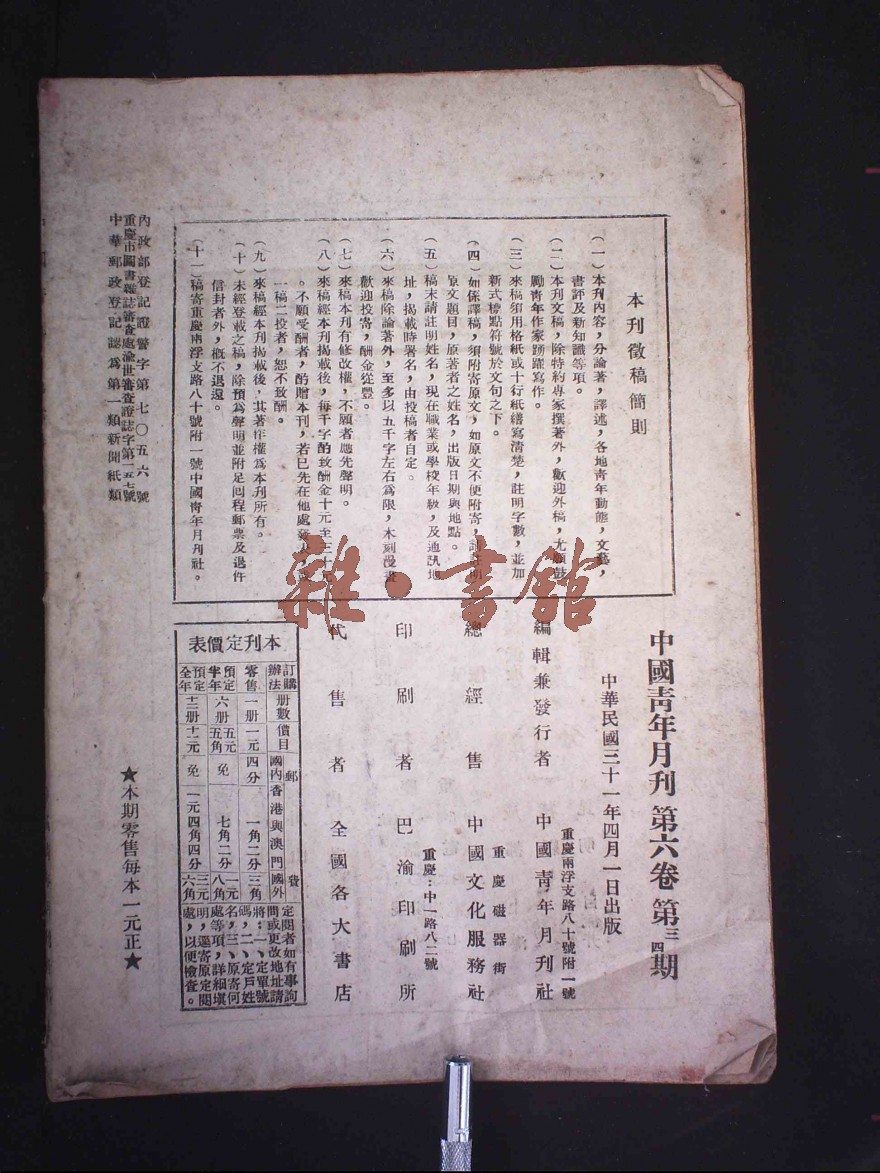 中國靑年月刊 第六卷 第三四期
中華民國三十一年四月一日出版
重慶兩浮支路八十號附一號
編輯兼發行者 中國靑年月刊社
重慶磁器街
總經售 中國文化服務社
重慶：中一路八二號
印刷者 巴渝印刷所
代售者 全國各大書店
本刊徵稿簡則
（一）本刊內容，分論著，譯述，各地靑年動態，文藝，
書評及新知識等項。
（二）本刊文稿，除特約專家撰著外，歡迎外稿，尤願鼓
勵靑年作家踴躍寫作。
（三）來稿須用格紙或十行紙繕寫清楚，註明字數，並加
新式標點符號於文句之下。
（四）如係譯稿，須附寄原文，如原文不便附寄，請註明
原文題目，原著者之姓名，出版日期與地點。
（五）稿末請註明姓名，現在職業或學校年級，及通訊地
址，揭載時署名，由投稿者自定。
（六）來稿除論著外，至多以五千字左右爲限，木刻漫畫
歡迎投寄，酬金從豐。
（七）來稿本刊有修改權，不願者應先聲明。
（八）來稿經本刊揭載後，每千字酌致酬金十元至三十元
。不願受酬者，酌贈本刊，若已先在他處發表或
一稿二投者，恕不致酬。
（九）來稿經本刊揭載後，其著作權爲本刊所有。
（十）未經登載之稿，除預爲聲明並附足囘程郵票及退件
信封者外，概不退還。
（十一）稿寄重慶兩浮支路八十號附一號中國靑年月刊社。
本刊定價表
訂購辦法 册數 價目 郵費 國內 香港與澳門 國外
零售 一册 一元 四分 一角二分 三角
預定半年 六册 五元五角 免 七角二分 一元八角
預定全年 十二册 十一元 免 一元四角四分 三元六角
定閱者如有事詢
問或更改地址請
將：一、定單號
碼，二、定戶姓
名，三、原寄何
處等項，詳細塡
明，逕寄原定閱
處，以便檢查。
內政部登記證警字第七〇五六號
重慶市圖書雜誌審查處渝世審查證誌字第一五七號
中華郵政登記認爲第一類新聞紙類
★本期零售每本一元正★
雜·書館